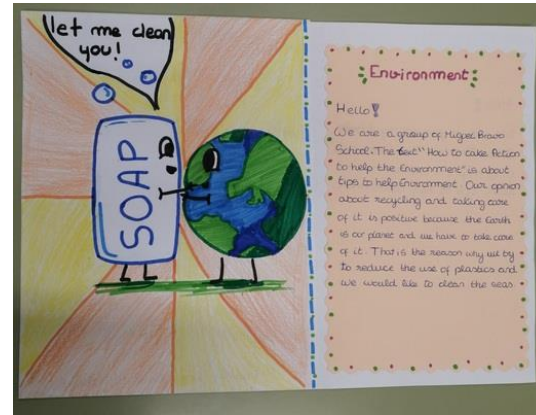 let me clean
you!
SOAP
Environment
Hello!
We are a group of Miguel Bravo
School. The text "How to take Action
to help the Environment" is about
tips to help Environment Our opnion
about recycling and taking care
of it is positive because the Earth
is our planet and we have to take care
of it. That is the reason why we try
to reduce the use of plastics and
we would like to clean the seas